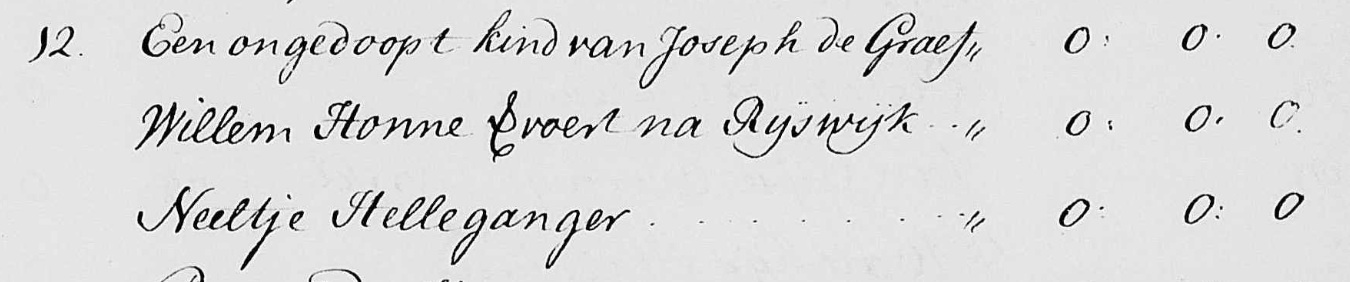 12. Een ongedoopt kind van Joseph de Graef „ 0: 0. 0.
Willem Honne vroert na Rÿswÿk .. „ 0: 0. 0.
Neeltje Helleganger . . . . . . . . „ 0: 0: 0